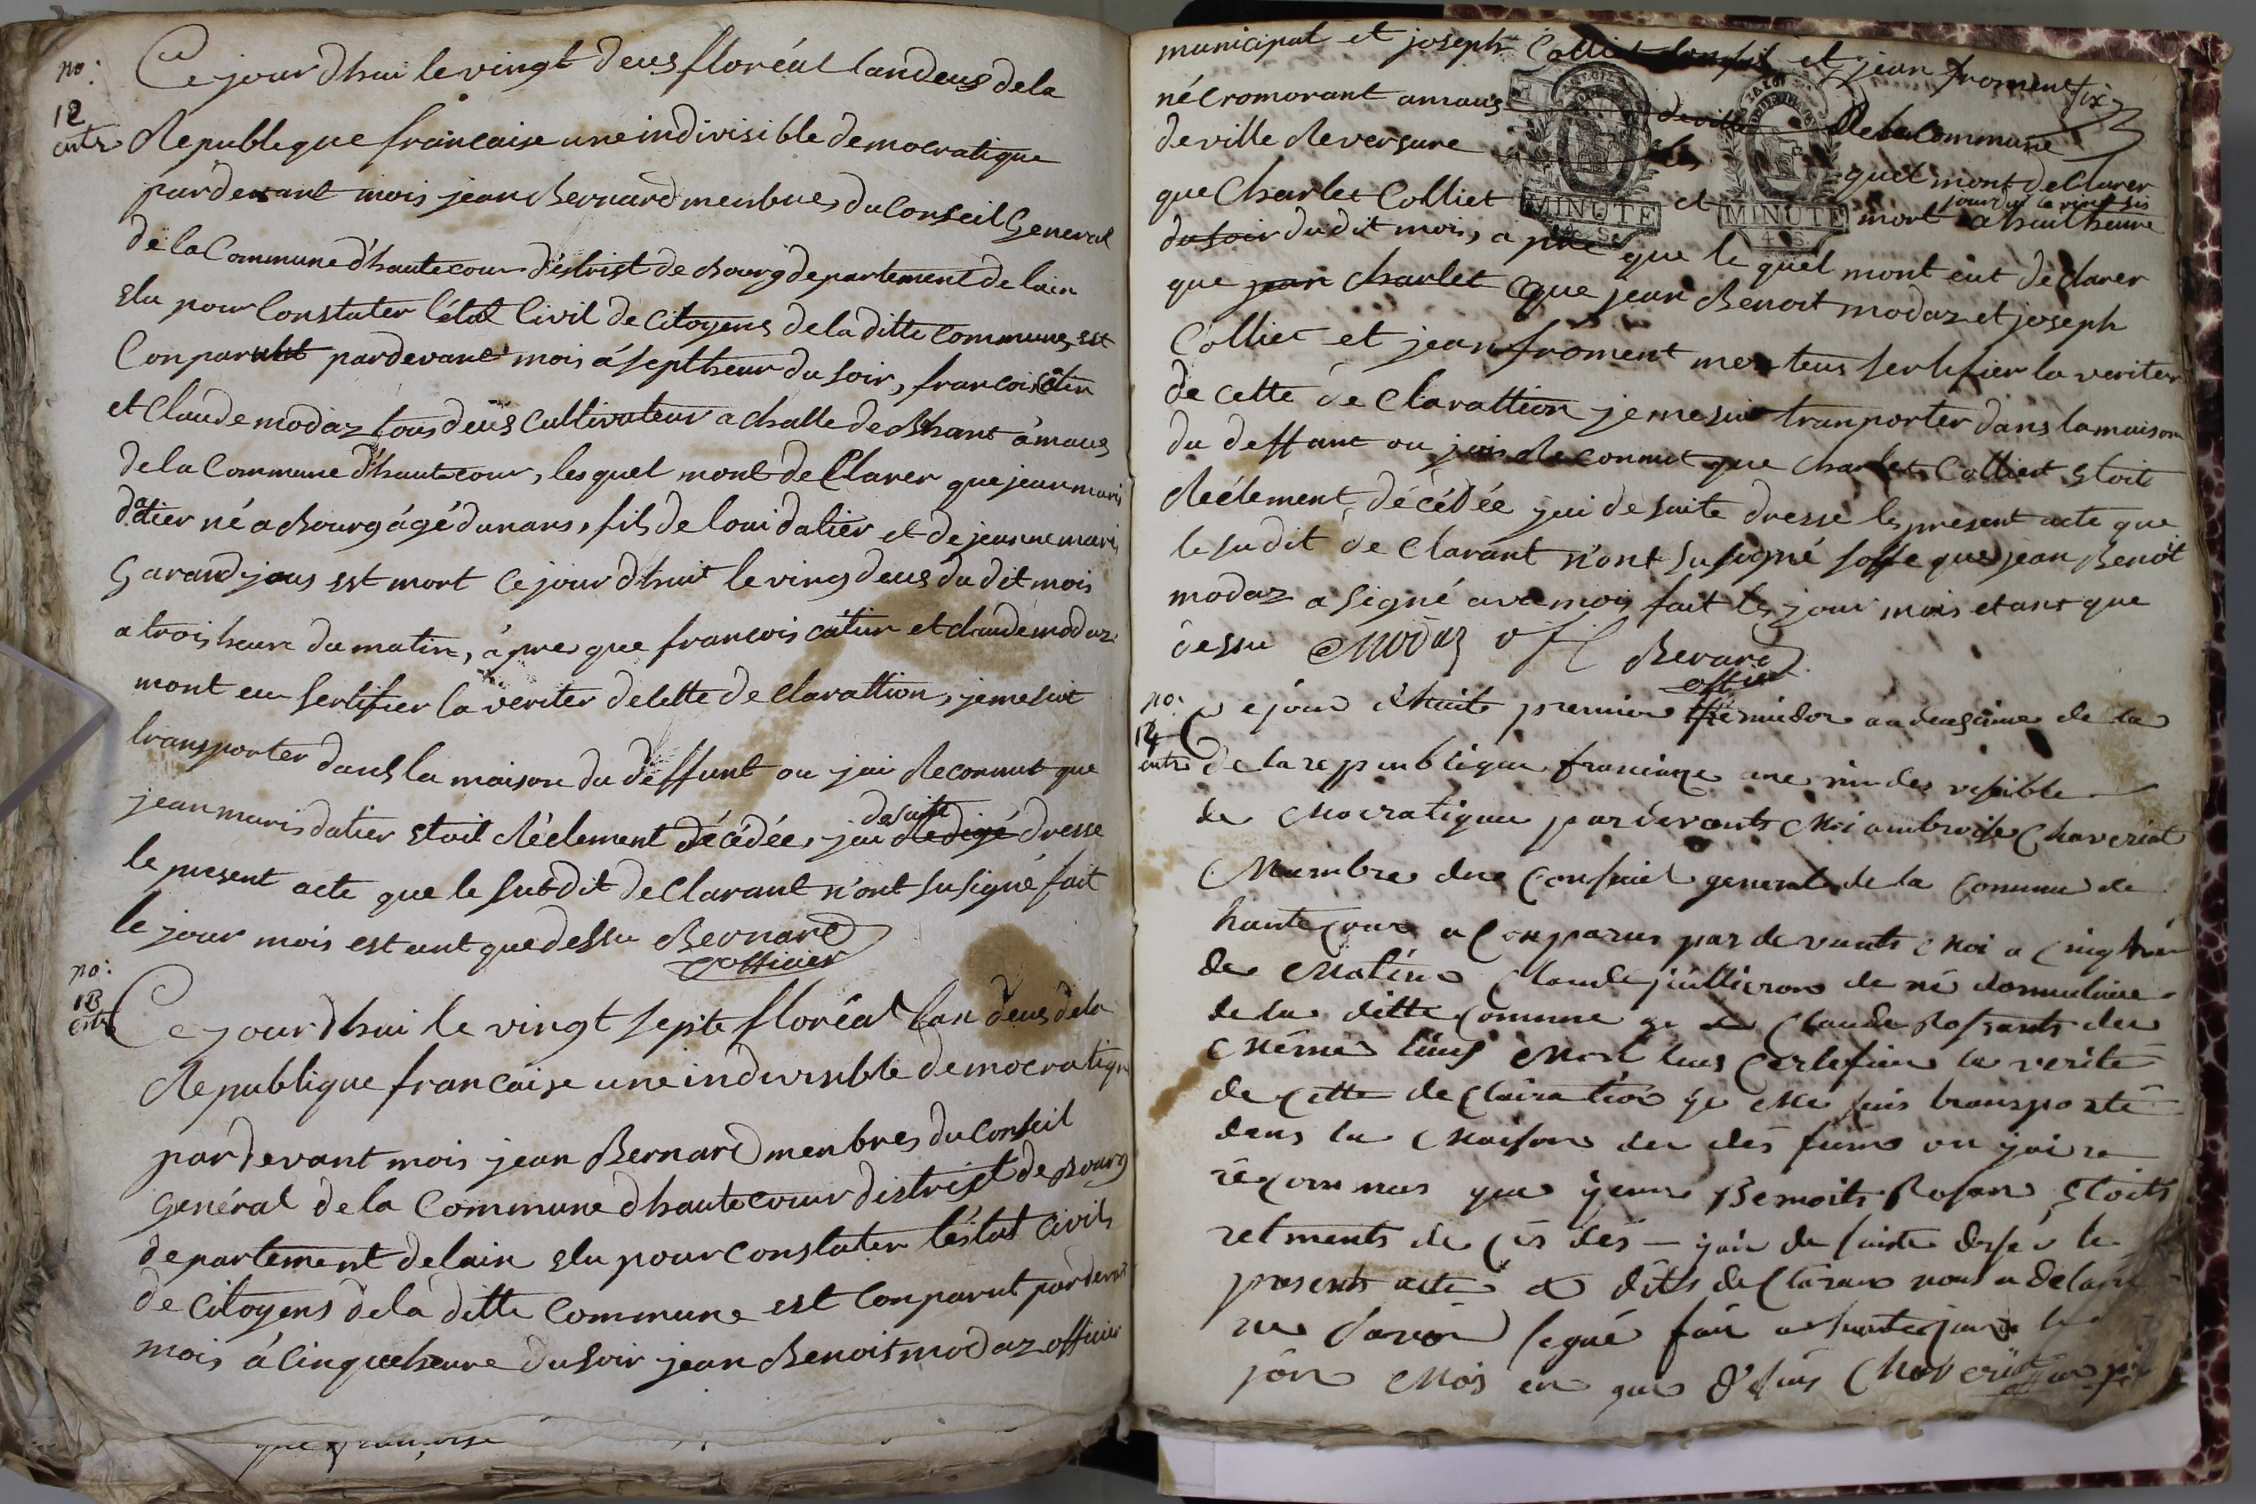 no:
12
acte
Ce jour dhui le vingt deus floréal landeus dela
Republeque francaise une indivisible democratique
pardevant mois jean Bernard menbres du Conseil General
de la Commune d'hautecour district de Bourg departement de lain
elu pour Constater l'état Civil de Citoyens dela ditte Commune, est
Conparut pardevant mois á septheur du soir, francois
et Claude modaz tous deus Cultivateur a Challe de Bhant á maus
de la Commune d'hautecour, lesquel mont de Clarer que jean maris
datier né a Bourg ágé dunans, fils de loui datier et de jeanne maris
Garandjous est mort Ce jour dhuit le vingdeus du dit mois
a trois heure du matin, á pres que francois et claude modaz
mont eu sertifier la veriter de cette de Clarattion, jemesuit
transporter dans la maison du deffunt ou jai Reconnut que
de suite
jean maris datier etoit Réelement décédée, jai Redigé dresse
le present acte que le subdit de Clarant n'ont su signé fait
le jour mois est ant que dessu Bernard
officier
no:
13
acte
Ce jour dhui le vingt septe floréal lan deus dela
Republique francaise une indivisible democratique
pardevant mois jean Bernard menbres du Conseil
général de la Commune dhautecour district de Bourg
departement delain elu pour constater l'estat Civils
de Citoyens de la ditte Commune est Conparut pardevant
mois á Cinqueheure du soir jean Benoit modaz officier
municipal et joseph Colliet et jean froment
né cromorant a maus de ville De la Commune
de ville Reversure quel mont de Clarer
jourdui le vint sis
que Charlet Colliet et mort a huit heure
du soir du dit mois, a pre que le quel mont eut declarer
que jean Charlet que jean Benoit modaz et joseph
Colliet et jean froment mon teus sertifier la veriter
de cette de Clarattion je me suit tranporter dans la maison
du deffant ou jais Reconnut que Charlet Colliet etoit
Réelement décédée jai de suite dresse les present acte que
le sudit de Clarant n'ont su signé soffe que jean Benoit
modaz a signé ave mois fait les jour mois et ans que
dessu Modaz off Berard
officier
no:
14
acte
Ce jour dhuit premier termidor an deusieme de la
de la reppublique francaize une
de Mocratique pardevants Moi ambroise Chaveriat
Membre du Conseiel general de la Commune de
hautecour a Conparus par de vants Moi a Cinq
de Matin Claude juillieron de né domiciliée
de la ditte Comune Claude Rossants du
Méme lius Mont teus Certefier la verité
de Cette de Clairation je Me suis transporté
dans la Maison du dés funs ou jai re
réConnus que jean Benoits Rosan etoits
relments de Cés dés – jai de suiste dressé le
presents acte dits de Claran nous a délaré
ne savoir segné fait a hautecour le
jour Mois en que dessus Chaveriat
que francoise